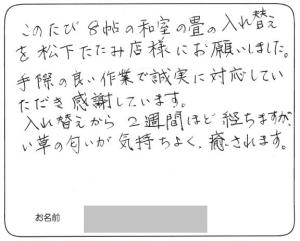 このたび8帖の和室の畳の入れ替え
を松下たたみ店様にお願いしました。
手際の良い作業で誠実に対応してい
ただき感謝しています。
入れ替えから2週間ほど経ちますが、
い草の匂いが気持ちよく、癒されます。
お名前